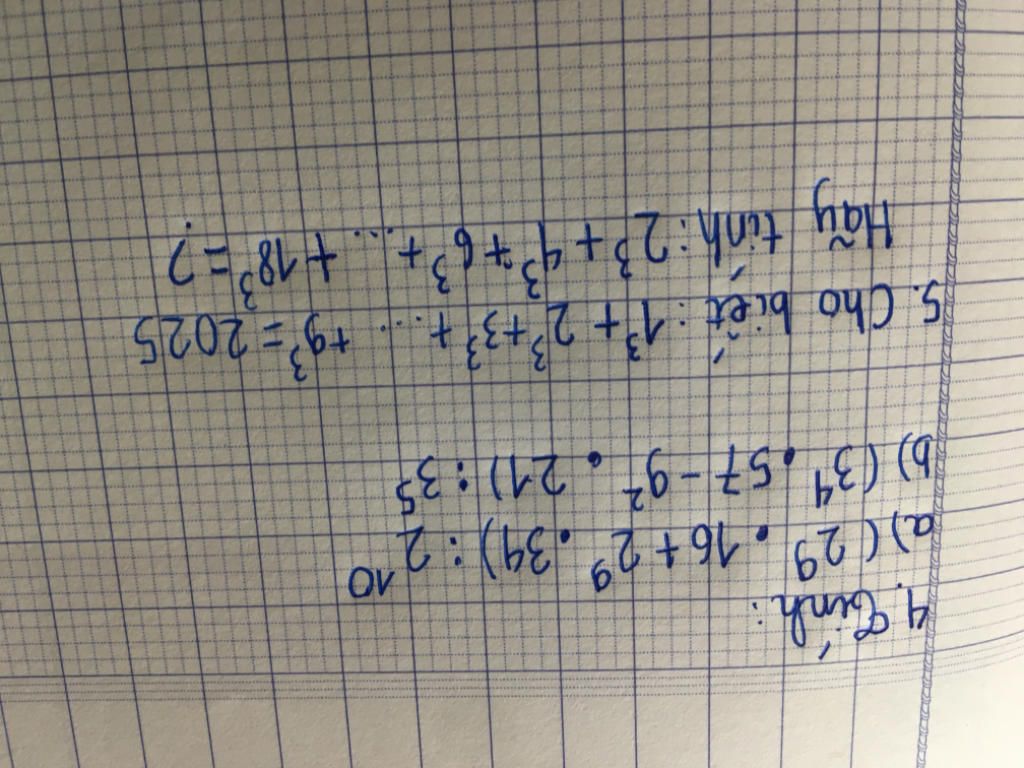 4. Tính:
a) (2⁹ . 16 + 2⁹ . 34) : 2¹⁰
b) (3⁴ . 57 - 9² . 21) : 3⁵
5. Cho biết: 1³ + 2³ + 3³ + ... + 9³ = 2025
Hãy tính: 2³ + 4³ + 6³ + ... + 18³ = ?